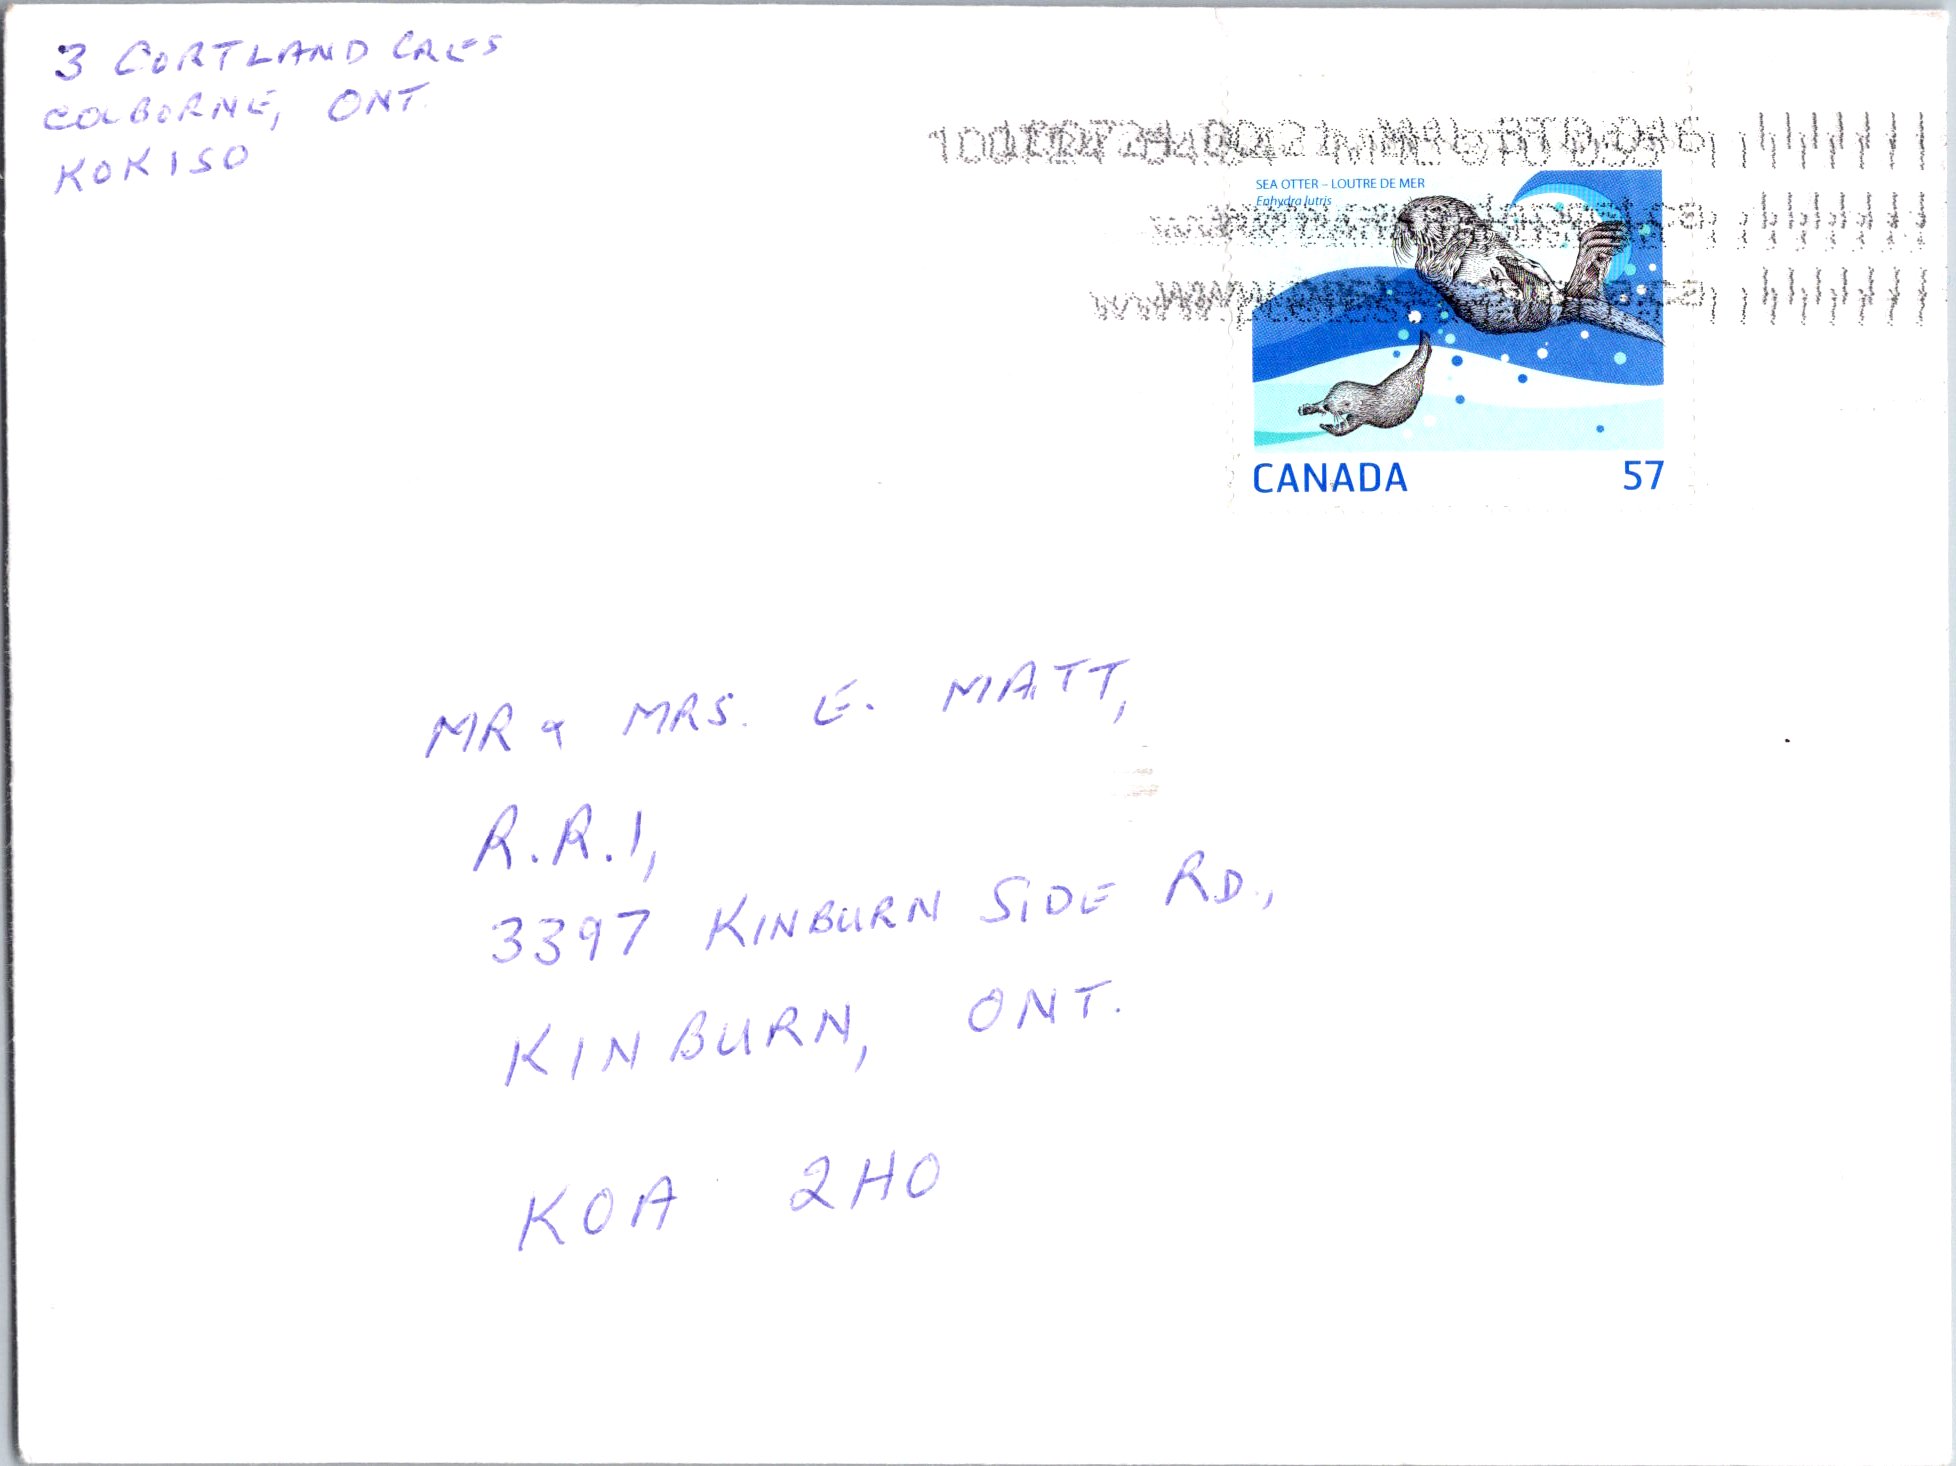 3 CORTLAND CRES
COLBORNE, ONT.
K0K 1S0
SEA OTTER – LOUTRE DE MER
Enhydra lutris
CANADA 57
MR & MRS. E. MATT,
R.R.1,
3397 KINBURN SIDE RD.,
KINBURN, ONT.
K0A 2H0